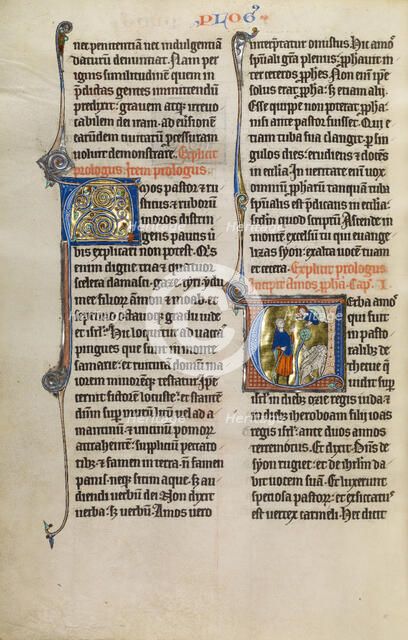 PLOG
nec penitentia nec indulgentia
daturum denuntiat. Nam per
ignis similitudinem quem in
pditas gentes inmittendum
predixit: grauem atq; irreuo
cabilem dei iram ad euersionem
earumdem ciuitatum
uoluit demonstrare. Explicit
prologus. Item prologus.
Amos pastor & ru
sticus & ruborum
moros distrin
gens paucis u
bis explicari non potest. Qis
enim digne tria & quatuor
scelera damasci. gaze. tyri. ydu
mee. filiorum ammon & moab. et
septimo octauoq; gradu iude
et isrl. Hic loquitur ad uacca
pingues que sunt in monte
samarie. et ruitura domum ma
iorem minoremq; testatur. Ipse
cernit fictorem locuste. et stante
dnm super murum litum uel ad a
mantinum. et uncinum pomor
attrahentem supplicium peccato
ribz. et famem in terra. non famem
panis. neq; sitim aque. sz au
diendi uerbum dei. Non dixit
uerba. sz uerbum. Amos uero
interpretatur onustus. Hic amos
spirituali gratia plenus. phauit in
ter ceteros prophetas. Non enim ipse
solus erat propha. sz etiam alii.
Esse quippe non poterat propha.
nisi ante pastor fuisset. Qui e
tiam tuba sua clangit per sin
gulos dies. erudiens & docens
in ecclesia. In ueritate enim uox
omnium prophetarum tanquam tuba
spiritalis est predicans in ecclesia.
quod scriptum. Ascende in
montem excelsum tu qui euange
lizas syon. exalta uocem tuam
et cetera. Explicit prologus.
Incipit amos propha. Cap. I.
Uerba amos
qui fuit
in pasto
ralibz de
thecue q
uidit super
isrl in diebz ozie regis iuda &
in diebz iheroboam filii ioas
regis isrl. ante duos annos
terremotus. Et dixit. Dns de
syon rugiet. et de ihrlm da
bit uocem suam. Et luxerunt
speciosa pastorum. et exsiccatus
est uertex carmeli. Hec dicit
Heritage
Heritage